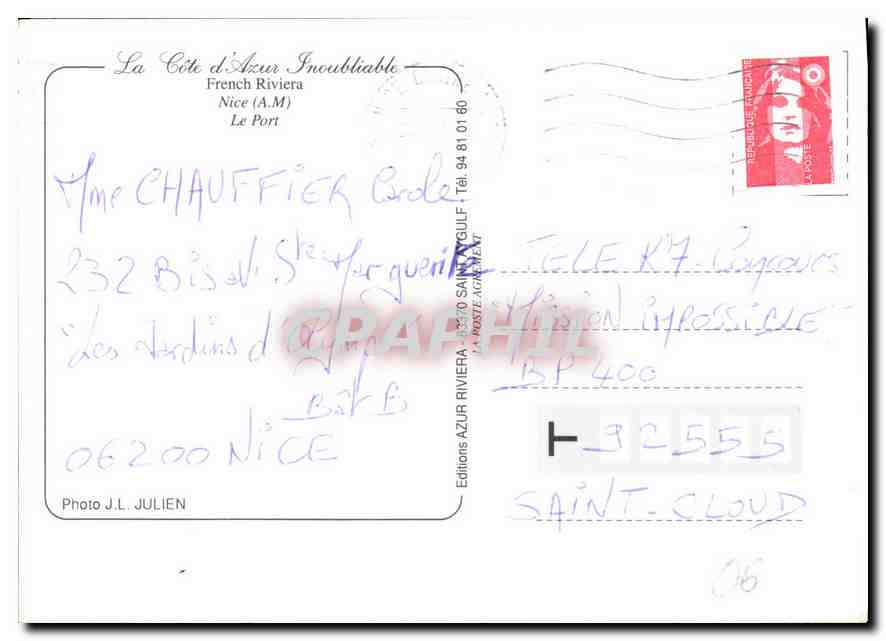 La Côte d'Azur Inoubliable
French Riviera
Nice (A.M)
Le Port
Mme CHAUFFIER Carole
232 Bis Av Ste Marguerite
"Les Jardins d'
Bât B
06200 NICE
Photo J.L. JULIEN
Editions AZUR RIVIERA - 83370 SAINT AYGULF . Tél. 94 81 01 60
LA POSTE AGREMENT
CPAPHIL
REPUBLIQUE FRANÇAISE
LA POSTE
TELE K7 - Concours
"MISSION IMPOSSIBLE"
BP 400
T 92555
SAINT-CLOUD
06